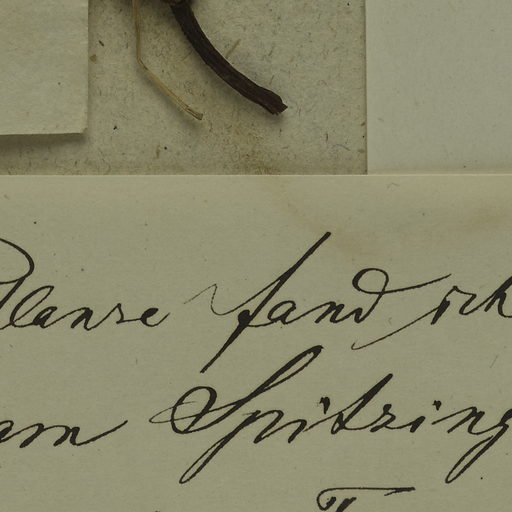 Planze fand ich
am Spitzing